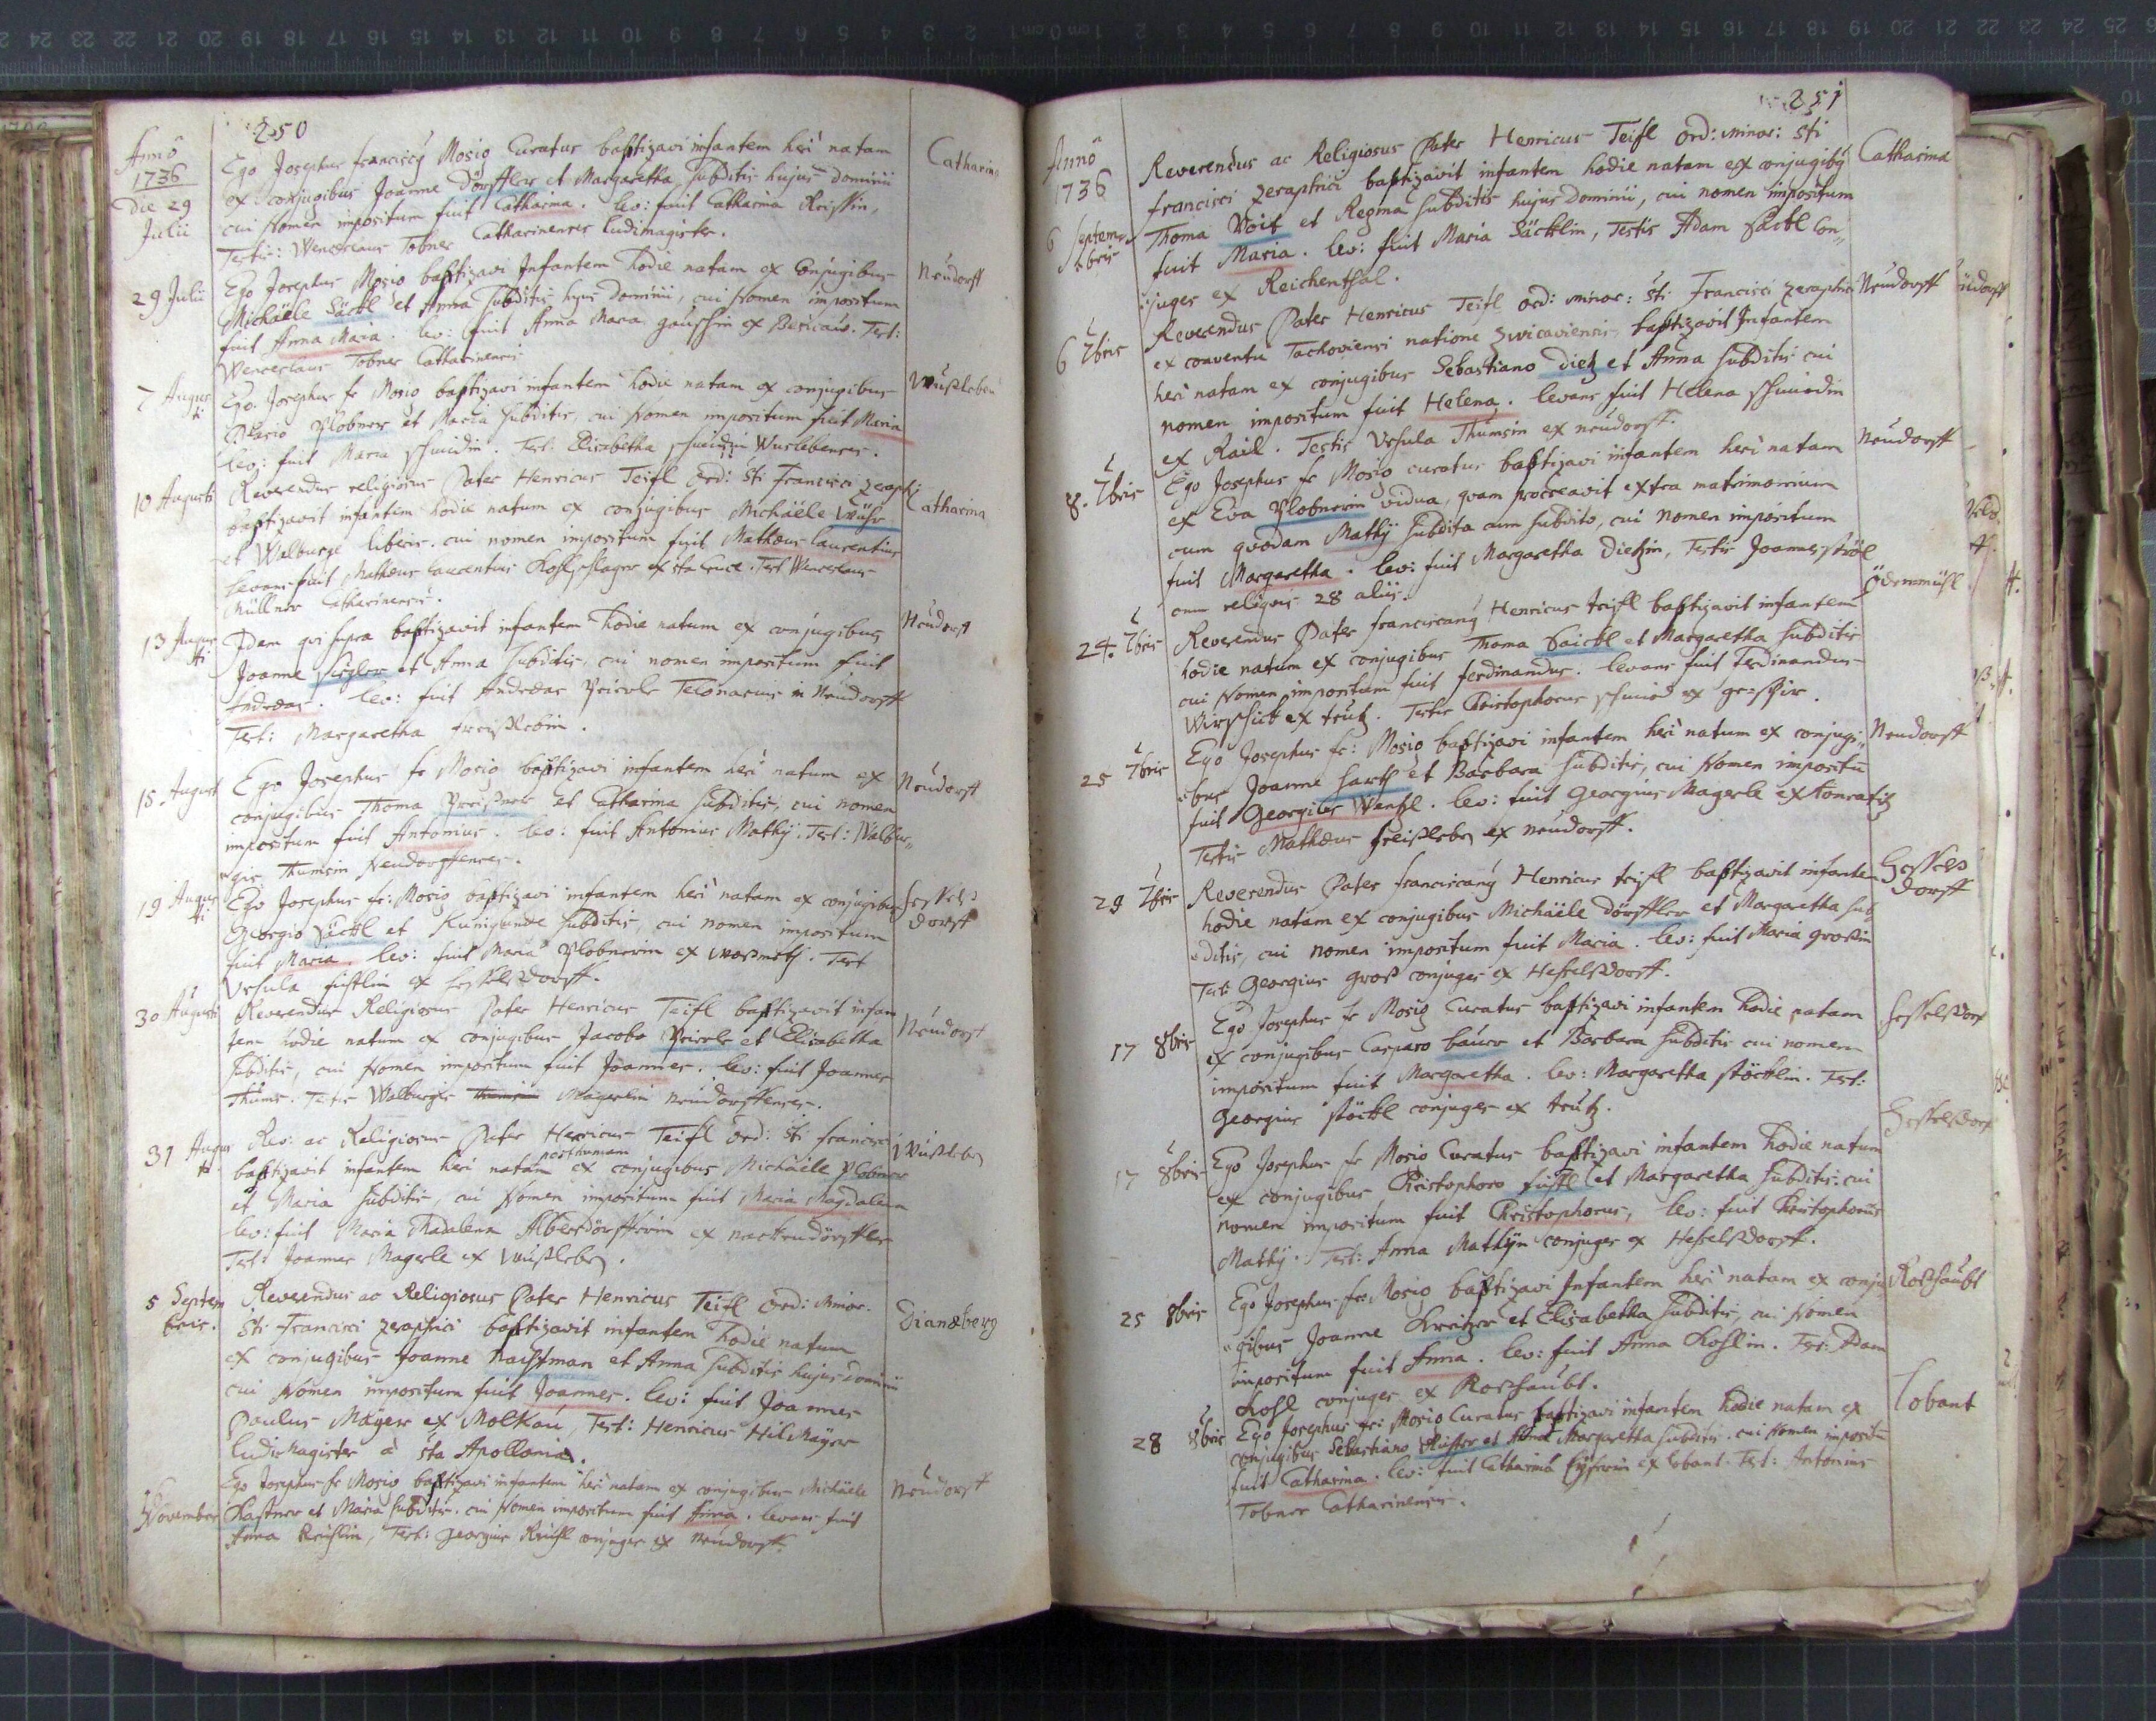 250
Anno
1736
Die 29
Julii
Ego Josephus franciscy Mosig Curatus baptizavi infantem heri natam
ex conjugibus Joanne Dörffler et Margaretha subditis hujus dominii
cui Nomen impositum fuit Catharina. lev: fuit Catharina
Testis: Wenceslaus Tobner Catharinensis ludimagister.
Catharina
29 Julii
Ego Josephus Mosig baptizavi Infantem hodie natam ex Conjugibus
Michäele Säckl et Anna subditis hujus dominii, cui Nomen impositum
fuit Anna Maria. lev: fuit Anna Maria ex Test:
Wenceslaus Tobner Catharinensis
Neudorff
7 Augus
ti
Ego Josephus fr Mosig baptizavi infantem hodie natam ex conjugibus
Plobner et Maria subditis, cui Nomen impositum fuit Maria
lev: fuit Maria Schmidin. Test: Elisabetha Schmidin Wuslebenses.
Wusleben
10 Augusti
Reverendus religiosus Pater Henricus Teifl Ord: Sti Francisci
baptizavit infantem hodie natum ex conjugibus Michäele Wühr
et Walburge liberis. cui nomen impositum fuit Mathæus laurentius
levans fuit Mathæus laurentius ex sta cruce. Test Wenceslaus
Müllner Catharinensis.
Catharina
13 Augus
ti
Idem qui supra baptizavit infantem hodie natum ex conjugibus
Joanne et Anna subditis, cui nomen impositum fuit
Andreas. lev: fuit Andreas Telonarius in Neudorff
Test: Margaretha
Neudorff
15 August
Ego Josephus fr Mosig baptizavi infantem heri natum ex
conjugibus Thoma et Catharina subditis, cui nomen
impositum fuit Antonius. lev: fuit Antonius Mathÿ. Test: Walbur„
„gis Thumsin Neudorffenses.
Neudorff
19 Augus
ti
Ego Josephus fr: Mosig baptizavi infantem heri natam ex conjugibus
Georgio Säckl et Kunigunde subditis, cui nomen impositum
fuit Maria. lev: fuit Maria Plobnerin ex Test
Ursula ex Hesselsdorff.
Hessels
dorff
30 Augusti
Reverendus Religiosus Pater Henricus Teifl baptizavit infan
tem hodie natum ex conjugibus Jacobo et Elisabetha
subditis, cui Nomen impositum fuit Joannes. lev: fuit Joannes
Thums. Testis Walburgis Magerlin Neudorffenses.
Neudorff
31 Augus
ti
Rev: ac Religiosus Pater Henricus Teifl Ord: Sti francisci
posthumam
baptizavit infantem heri natam ex conjugibus Michäele Plobner
et Maria subditis, cui Nomen impositum fuit Maria Magdalena
lev: fuit Maria Madalena ex
Test: Joannes Magerle ex Wusleben.
Wusleben
5 Septem
bris.
Reverendus ac Religiosus Pater Henricus Teifl Ord: Minor.
Sti Francisci zeraphici baptizavit infantem hodie natum
ex conjugibus Joanne et Anna subditis hujus dominii
cui Nomen impositum fuit Joannes. lev: fuit Joannes
Paulus Mayer ex Molkau, Test: Henricus Hilmayer
ludimagister à sta Apollonia.
Dianæberg
November
Ego Josephus fr Mosig baptizavi infantem heri natam ex conjugibus Michäele
Kastner et Maria subditis. cui Nomen impositum fuit Anna. levans fuit
Anna, Test: Georgius conjuges ex Neudorff.
Neudorff
251
Anno
1736
6 Septem
bris
Reverendus ac Religiosus Pater Henricus Teifl Ord: minor: Sti
francisci zeraphici baptizavit infantem hodie natam ex conjugibus
Thoma Voit et Regina subditis hujus Dominii, cui nomen impositum
fuit Maria. lev: fuit Maria Säcklin, Testis Adam Säckl Con„
„juges ex Reichenthal.
Catharina
6 7bris
Reverendus Pater Henricus Teifl ord: minor: Sti Francisci zeraphici
ex conventu Tachoviensi natione Zwicaviensis baptizavit Infantem
heri natam ex conjugibus Sebastiano Dietz et Anna subditis cui
nomen impositum fuit Helena. levans fuit Helena Schmidin
ex Rail. Testis Ursula Thumsin ex neudorff.
Neudorff
8. 7bris
Ego Josephus fr Mosig curatus baptizavi infantem heri natam
ex Eva Plobnerin vidua, quam procreavit extra matrimonium
cum quodam Mathÿ subdita cum subdito, cui nomen impositum
fuit Margaretha. lev: fuit Margaretha Dietzin, Testis Joannes
cum reliquis 28 aliis.
Neudorff
24. 7bris
Reverendus Pater franciscanus Henricus teifl baptizavit infantem
hodie natum ex conjugibus Thoma et Margaretha subditis
cui Nomen impositum fuit ferdinandus. levans fuit Ferdinandus
ex trutz. Testis Christophorus Schmid ex
Ödenmühl
25 7bris
Ego Josephus fr: Mosig baptizavi infantem heri natum ex conjugi„
„bus Joanne et Barbara subditis, cui Nomen impositu
fuit Georgius Wenzl. lev: fuit Georgius Magerle ex
Testis Mathæus ex neudorff.
Neudorff
29 7bris
Reverendus Pater franciscanus Henricus teifl baptizavit infantem
hodie natam ex conjugibus Michäele Dörffler et Margaretha sub
„ditis, cui nomen impositum fuit Maria. lev: fuit Maria großin
Test: Georgius groß conjuges ex Hesselsdorff.
Hessels
dorff
17 8bris
Ego Josephus fr Mosig Curatus baptizavi infantem hodie natam
ex conjugibus Casparo baurr et Barbara subditis cui nomen
impositum fuit Margaretha. lev: Margaretha Stöcklin. Test:
Georgius Stöckl conjuges ex trutz.
Hesselsdorf
17 8bris
Ego Josephus fr Mosig Curatus baptizavi infantem hodie natum
ex conjugibus Christophoro et Margaretha subditis. cui
nomen impositum fuit Christophorus, lev: fuit Christophorus
Mathÿ. Test: Anna Mathÿn conjuges ex Hesselsdorff.
Hesselsdorf
25 8bris
Ego Josephus frs Mosig baptizavi Infantem heri natam ex conju
„gibus Joanne et Elisabetha subditis, cui Nomen
impositum fuit Anna. lev: fuit Anna Koslin. Test: Adam
Kosl conjuges ex Roshaubt.
Roshaubt
28 8bris
Ego Josephus fr: Mosig Curatus baptizavi infantem hodie natam ex
conjugibus Sebastiano et Margaretha subditis. cui Nomen impositu
fuit Catharina. lev: fuit Catharina ex lobant. Test: Antonius
Tobner Catharinensis.
Lobant